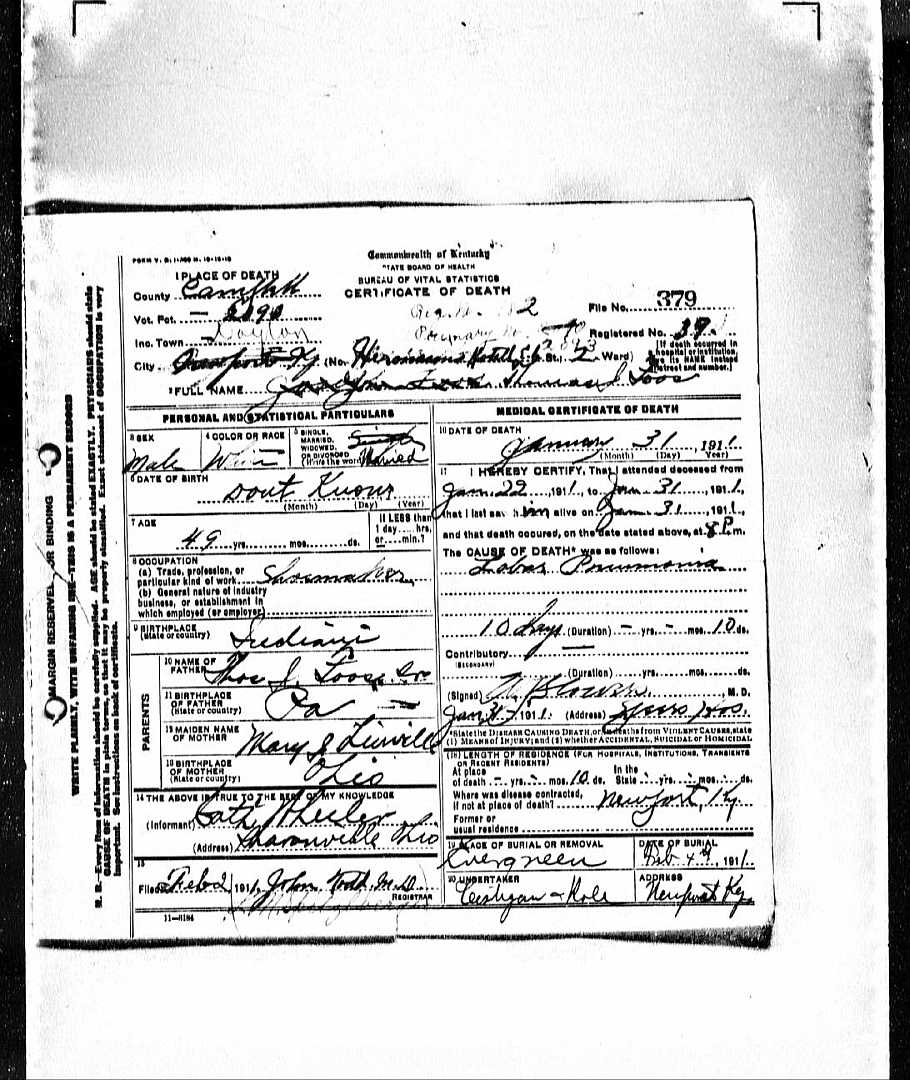 FORM V. S. 1
Commonwealth of Kentucky
STATE BOARD OF HEALTH
BUREAU OF VITAL STATISTICS
CERTIFICATE OF DEATH
1 PLACE OF DEATH
County Campbell
Vot. Pct.
Inc. Town Dayton
City Newport Ky (No. St., Ward)
File No. 379
Registered No. 39
[If death occurred in hospital or institution, give its NAME instead of street and number.]
2 FULL NAME Thomas J. Toos
PERSONAL AND STATISTICAL PARTICULARS
3 SEX Male
4 COLOR OR RACE White
5 SINGLE, MARRIED, WIDOWED, OR DIVORCED (Write the word) Single Married
6 DATE OF BIRTH Dont Know
(Month) (Day) (Year)
7 AGE 49 yrs. mos. ds.
If LESS than 1 day.... hrs. or.... min.?
8 OCCUPATION
(a) Trade, profession, or particular kind of work Shoemaker
(b) General nature of industry business, or establishment in which employed (or employer)
9 BIRTHPLACE (State or country) Indiana
PARENTS
10 NAME OF FATHER Thos J. Toos Sr
11 BIRTHPLACE OF FATHER (State or country) Pa
12 MAIDEN NAME OF MOTHER Mary J
13 BIRTHPLACE OF MOTHER (State or country) Ohio
14 THE ABOVE IS TRUE TO THE BEST OF MY KNOWLEDGE
(Informant) Cath Wheeler
(Address) Sharonville Ohio
15
Filed Feb 2 1911 John Todd M.D. REGISTRAR
11—8184
MEDICAL CERTIFICATE OF DEATH
16 DATE OF DEATH January 31, 1911
(Month) (Day) (Year)
17 I HEREBY CERTIFY, That I attended deceased from
Jan 22, 1911, to Jan 31, 1911,
that I last saw him alive on Jan 31, 1911,
and that death occured, on the date stated above, at 8 P.m.
The CAUSE OF DEATH* was as follows:
Lobar Pneumonia
10 Days (Duration) – yrs. – mos. 10 ds.
Contributory —
(SECONDARY)
(Duration) yrs. mos. ds.
(Signed) M. D.
Jan 31, 1911. (Address) Speers Hos.
*State the DISEASE CAUSING DEATH, or, in deaths from VIOLENT CAUSES, state (1) MEANS OF INJURY; and (2) whether ACCIDENTAL, SUICIDAL or HOMICIDAL
18 LENGTH OF RESIDENCE (FOR HOSPITALS, INSTITUTIONS, TRANSIENTS OR RECENT RESIDENTS)
At place of death – yrs. – mos. 10 ds. In the State yrs. mos. ds.
Where was disease contracted, if not at place of death? Newport, Ky.
Former or usual residence
19 PLACE OF BURIAL OR REMOVAL Evergreen
DATE OF BURIAL Feb 4th, 1911.
20 UNDERTAKER
ADDRESS Newport Ky.
MARGIN RESERVED FOR BINDING
WRITE PLAINLY, WITH UNFADING INK—THIS IS A PERMANENT RECORD
N. B.—Every item of information should be carefully supplied. AGE should be stated EXACTLY. PHYSICIANS should state
CAUSE OF DEATH in plain terms, so that it may be properly classified. Exact statement of OCCUPATION is very
important. See instructions on back of certificate.